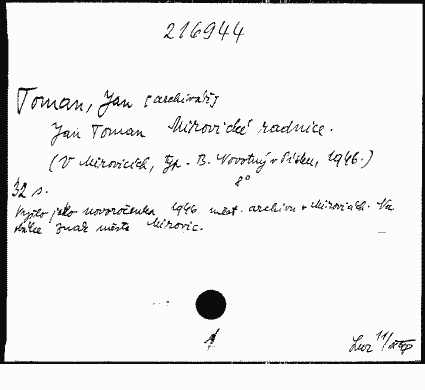 216944
Toman, Jan [archivář]
Jan Toman Mirovické radnice.
(V Mirovicích, typ. B. Novotný v Písku, 1946.)
8°
32 s.
Vyšlo jako novoročenka 1946 měst. archivu v Mirovicích. Na
obálce znak města Mirovic.